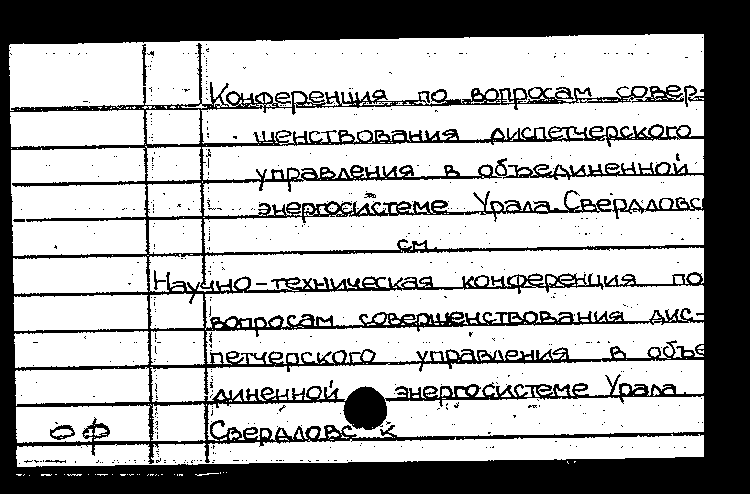 Конференция по вопросам совер-
шенствования диспетчерского
управления в объединенной
энергосистеме Урала. Свердловс
см.
Научно-техническая конференция по
вопросам совершенствования дис-
петчерского управления в объе
диненной энергосистеме Урала.
оф Свердловск